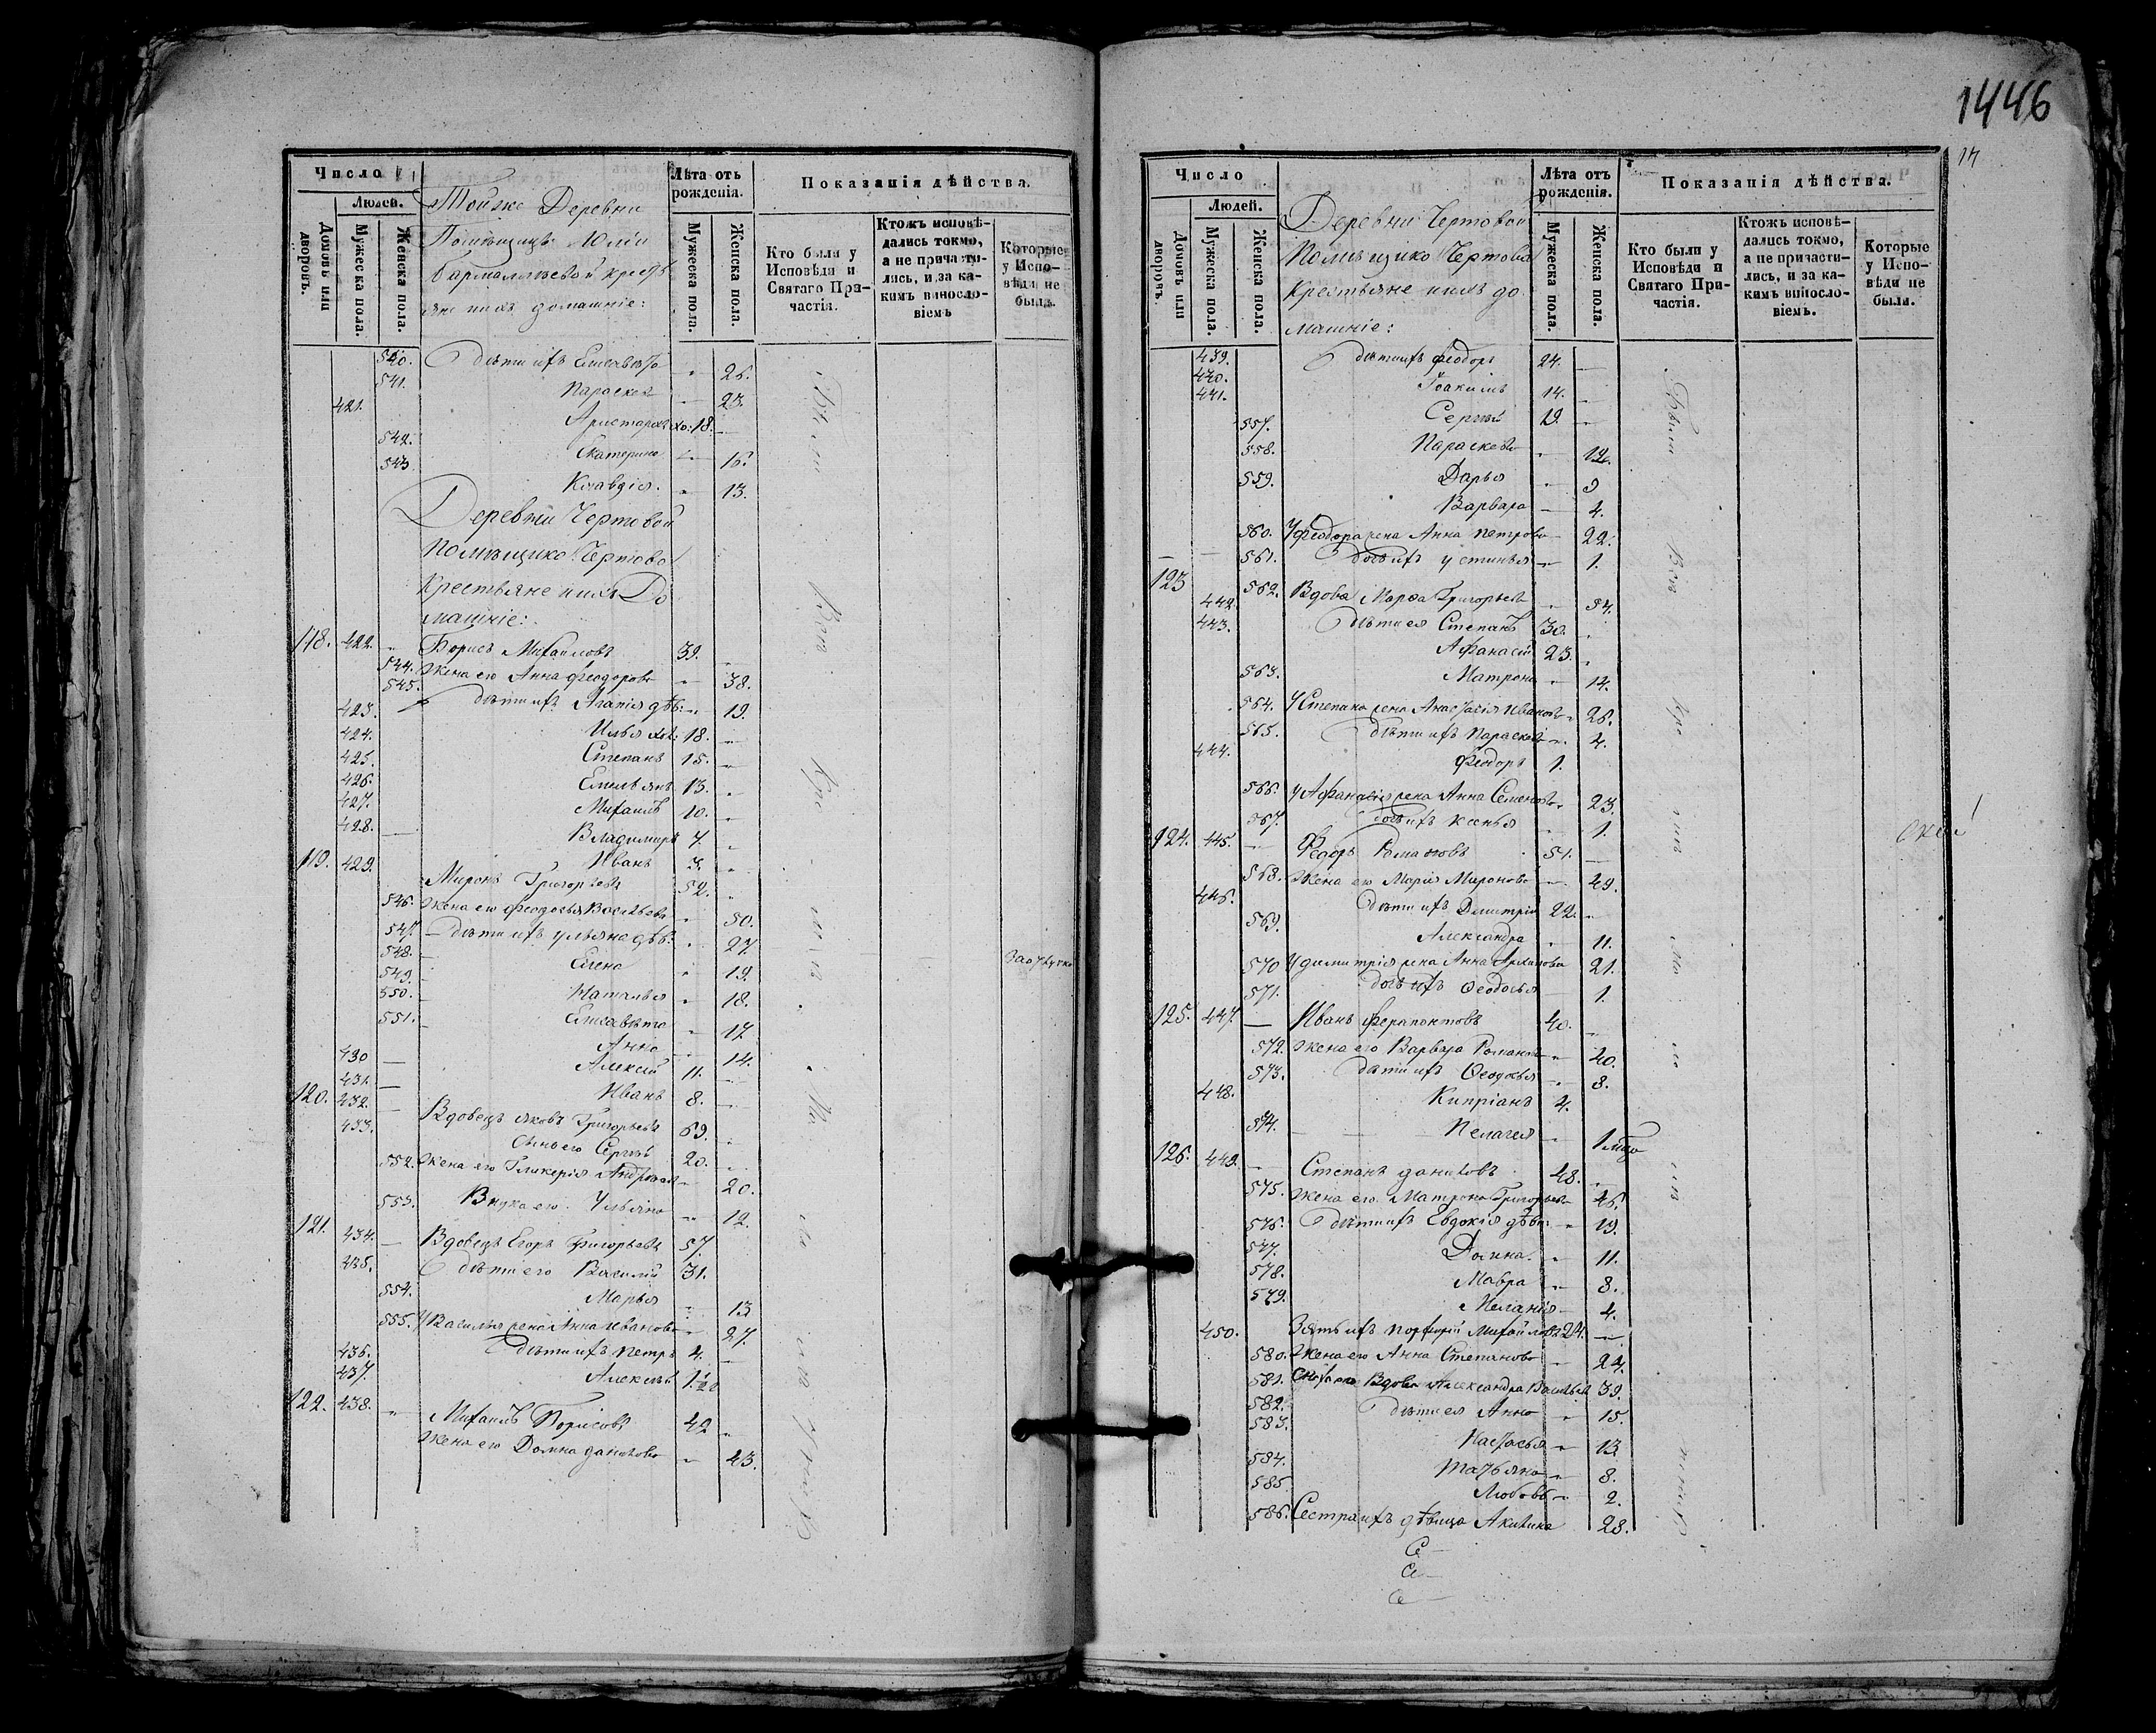 1446
14
Число
Людей.
Домовъ или дворовъ.
Мужеска пола.
Женска пола.
Тойже Деревни
Помѣщицѣ Юліи
крестьяне и ихъ домашніе:
Лѣта отъ рожденія.
Мужеска пола.
Женска пола.
Показанія дѣйства.
Кто были у Исповѣди и Святаго Причастія.
Ктожъ исповѣдались токмо, а не причастились, и за какимъ винословіемъ
Которые у Исповѣди не были.
540. дѣти ихъ Елисавета „ 26.
541. Параскева — 23.
421. Аристархъ хо: 18. —
542. Екатерина „ 16.
543 Клавдія. „ 13.
Деревни Чертовой
Помѣщика Чертова
Крестьяне и ихъ До
машніе:
118. 422. „ Борисъ Михайловъ 39. „
544. Жена его Анна Феодорова „ 38.
545. дѣти ихъ Агапія дѣв: „ 19.
423. Илья хол: 18. —
424. Степанъ 15. „
425. Емельянъ 13. „
426. Михаилъ 10. „
427. Владимиръ 7. „
428. — Иванъ 3. „
119. 429. Миронъ Григорьевъ 52. „
546. Жена его Феодосья Васильева „ 50.
547. дѣти ихъ Ульяна дѣв: „ 27.
548. Елена „ 19.
549. Наталья „ 18.
550. Елисавета „ 17.
551. Анна „ 14.
430 — Алексій 11. —
431. — Иванъ 8. —
120. 432. — Вдовецъ Яковъ Григорьевъ 69. „
433. Сынъ его Сергій 20. „
552. Жена его Гликерія „ 20.
553. Внука его Ульяна „ 12.
121. 434. — Вдовецъ Егоръ Григорьевъ 57.
435. дѣти его Василій 31.
554. Марья „ 13
555. У Василья жена Анна Иванова „ 27.
436. дѣти ихъ Петръ 4. —
437. Алексій
122. 438. „ Михаилъ Борисовъ 42 „
Жена его Домна Данилова „ 43.
Были
Вси
при
Число
Людей.
Домовъ или дворовъ.
Мужеска пола.
Женска пола.
Деревни Чертовой
Помѣщика Чертова
Крестьяне и ихъ до
машніе:
Лѣта отъ рожденія.
Мужеска пола.
Женска пола.
Показанія дѣйства.
Кто были у Исповѣди и Святаго Причастія.
Ктожъ исповѣдались токмо, а не причастились, и за какимъ винословіемъ.
Которые у Исповѣди не были.
439. дѣти ихъ Феодоръ 24. —
440. Іоакимъ 14. „
441. Сергій 12. „
557. Параскева „ 12.
558. Дарья „ 9
559. Варвара — 4.
560. У Феодора жена Анна Петрова — 22.
561. дочь ихъ Устинья „ 1.
123 562. Вдова Марѳа Григорьева „ 54.
442. дѣти ея Степанъ 30. „
443. Афанасій 23. „
563. Матрона „ 14.
564. У Степана жена Анастасія Иванова „ 26.
565. дѣти ихъ Параскева „ 4.
444. Феодоръ 1.
566. У Афанасія жена Анна Семенова „ 23.
567. дочь ихъ Ксенья „ 1.
124. 445. — Федоръ Романовъ 51. —
568. Жена его Марія Миронова „ 49.
446. дѣти ихъ Димитрій 22. „
569. Александра „ 11.
570 У Димитрія жена Анна 21.
571. дочь ихъ Феодосья — 1.
125. 447. — Иванъ Ферапонтовъ 40. „
572. Жена его Варвара Романова „ 40.
573. дѣти ихъ Феодосья „ 8.
448. Кипріанъ 4.
574. Пелагея „ 1
126. 449. — Степанъ Даниловъ 48. „
575. Жена его Матрона Григорьева 46.
576. дѣти ихъ Евдокія дѣв: „ 19.
577. Домна. „ 11.
578. Мавра „ 8.
579. Меланія — 4.
450. Зять ихъ Порфирій Михайловъ 24. —
580. Жена его Анна Степанова „ 24.
581. Вдова Александра Васильева 39.
582. дѣти ея Анна „ 15.
583. Настасья „ 13
584. Татьяна „ 8.
585. Любовь „ 2.
586. Сестра ихъ дѣвица Акилина 28.
Были
Вси
при